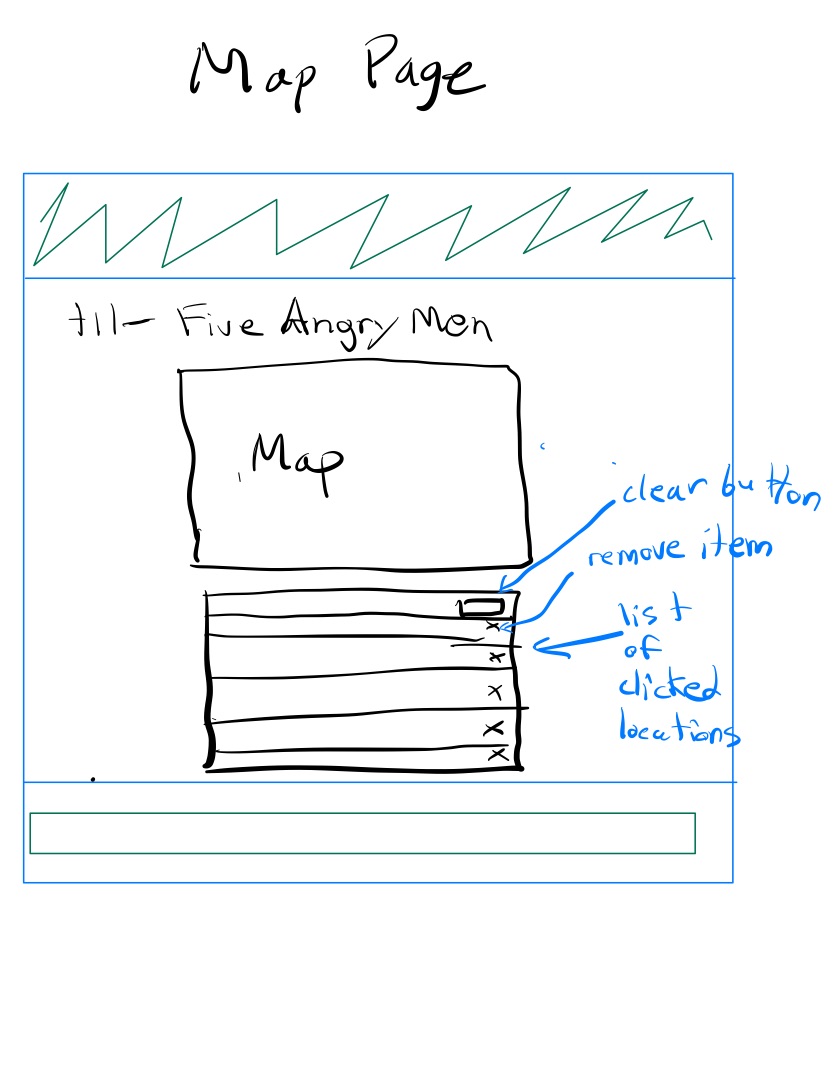 Map Page
Five Angry Men
Map
clear button
remove item
list
of
clicked
locations
x
x
x
x
x